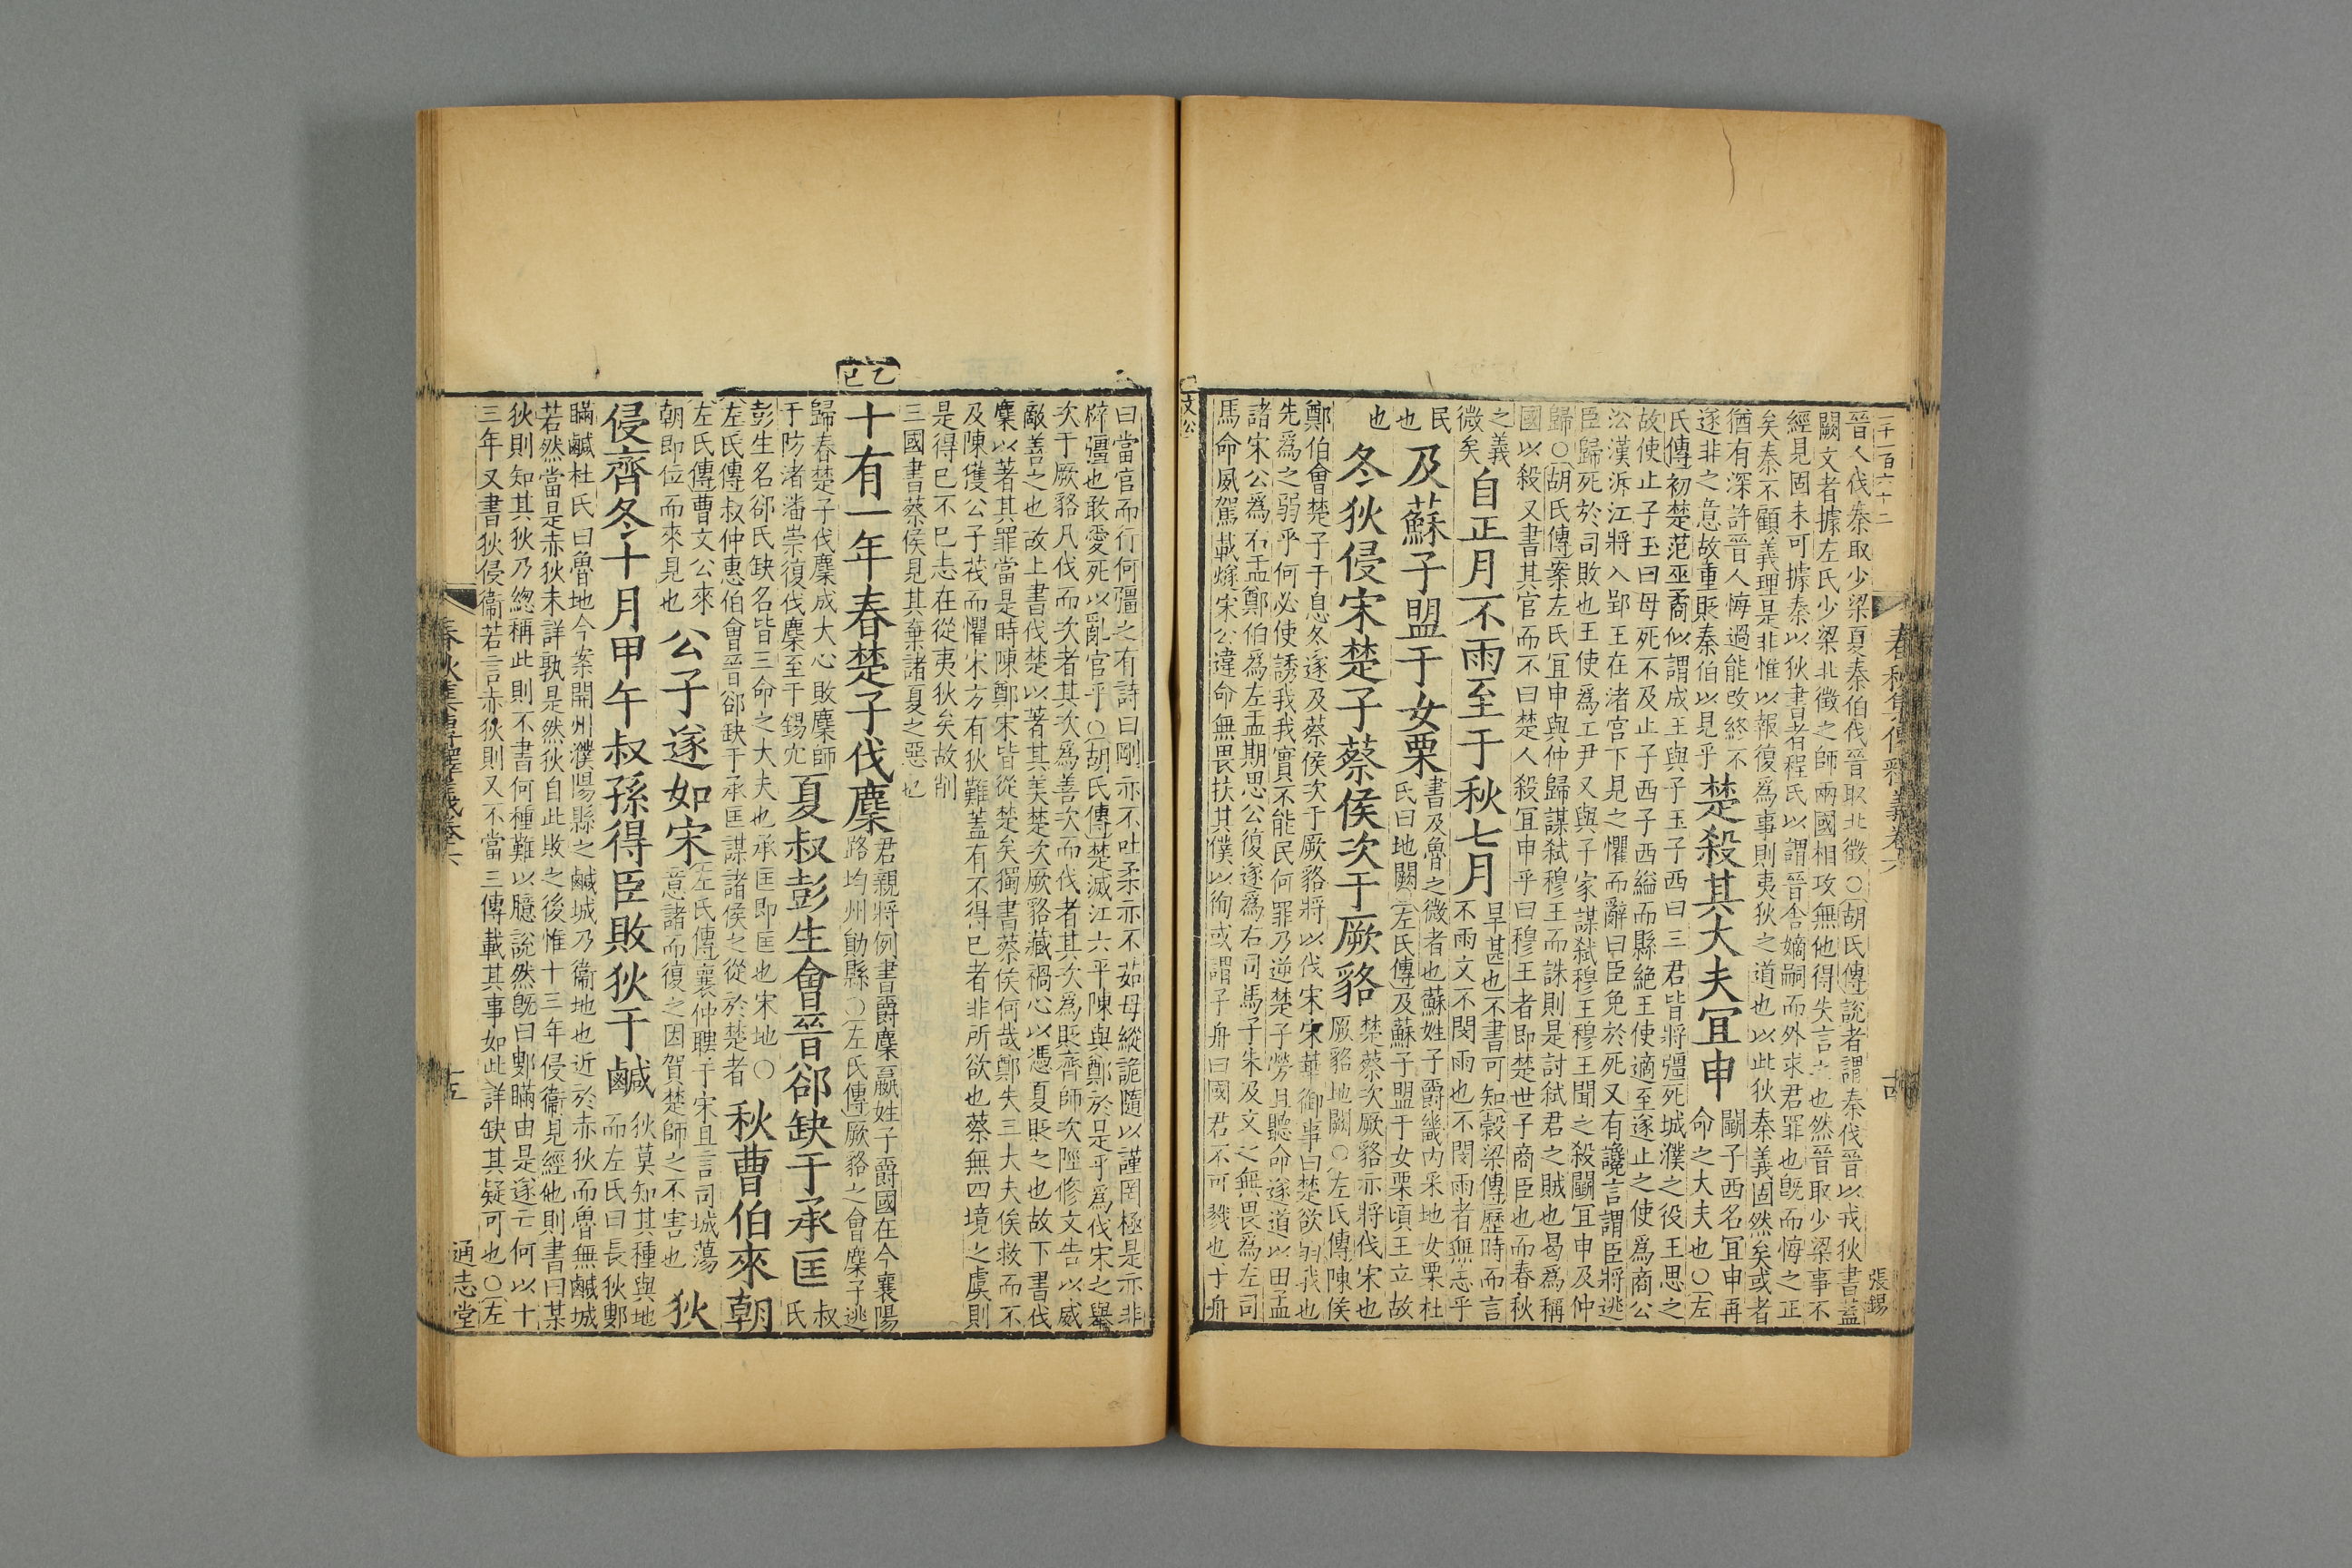 二千一百六十二
春秋集傳釋義卷六
十四
張錫
晉人伐秦取少梁夏秦伯伐晉取北徵〇胡氏傳說者謂秦伐晉以戎狄書蓋
闕文者據左氏少梁北徵之師兩國相攻無他得失言之也然晉取少梁事不
經見固未可據秦以狄書者程氏以謂晉舍嫡嗣而外求君罪也旣而悔之正
矣秦不顧義理是非惟以報復爲事則夷狄之道也以此狄秦義固然矣或者
猶有深許晉人悔過能改終不
遂非之意故重貶秦伯以見乎
楚殺其大夫冝申
鬭子西名冝申再
命之大夫也〇左
氏傳初楚范巫矞似謂成王與子玉子西曰三君皆將彊死城濮之役王思之
故使止子玉曰毋死不及止子西子西縊而縣絶王使適至遂止之使爲商公
沿漢泝江將入郢王在渚宮下見之懼而辭曰臣免於死又有讒言謂臣將逃
臣歸死於司敗也王使爲工尹又與子家謀弑穆王穆王聞之殺鬭冝申及仲
歸〇胡氏傳案左氏冝申與仲歸謀弑穆王而誅則是討弑君之賊也曷爲稱
國以殺又書其官而不曰楚人殺冝申乎曰穆王者即楚世子商臣也而春秋
之義
微矣
自正月不雨至于秋七月
旱甚也不書可知穀梁傳歷時而言
不雨文不閔雨也不閔雨者無志乎
民
也
及蘇子盟于女栗
書及魯之微者也蘇姓子爵畿內采地女栗杜
氏曰地闕左氏傳及蘇子盟于女栗頃王立故
也
冬狄侵宋楚子蔡侯次于厥貉
楚蔡次厥貉示將伐宋也
厥貉地闕〇左氏傳陳侯
鄭伯會楚子于息冬遂及蔡侯次于厥貉將以伐宋宋華御事曰楚欲弱我也
先爲之弱乎何必使誘我我實不能民何罪乃逆楚子勞且聽命遂道以田孟
諸宋公爲右盂鄭伯爲左盂期思公復遂爲右司馬子朱及文之無畏爲左司
馬命夙駕載燧宋公違命無畏抶其僕以徇或謂子舟曰國君不可戮也子舟
文公
曰當官而行何彊之有詩曰剛亦不吐柔亦不茹毋縱詭隨以謹罔極是亦非
辟彊也敢愛死以亂官乎〇胡氏傳楚滅江六平陳與鄭於是乎爲伐宋之舉
次于厥貉凡伐而次者其次爲善次而伐者其次爲貶齊師次陘修文告以威
敵善之也故上書伐楚以著其美楚次厥貉藏禍心以憑夏貶之也故下書伐
麇以著其罪當是時陳鄭宋皆從楚矣獨書蔡侯何哉鄭失三大夫俟救而不
及陳獲公子茷而懼宋方有狄難蓋有不得已者非所欲也蔡無四境之虞則
是得已不已志在從夷狄矣故削
三國書蔡侯見其棄諸夏之惡也
乙巳
十有一年春楚子伐麇
君親將例書爵麇嬴姓子爵國在今襄陽
路均州勛縣〇左氏傳厥貉之會麇子逃
歸春楚子伐麇成大心敗麇師
于防渚潘崇復伐麇至于錫穴
夏叔彭生會晉郤缺于承匡
叔
氏
彭生名郤氏缺名皆三命之大夫也承匡即匡也宋地〇
左氏傳叔仲惠伯會晉郤缺于承匡謀諸侯之從於楚者
秋曹伯來朝
左氏傳曹文公來
朝即位而來見也
公子遂如宋
左氏傳襄仲聘于宋且言司城蕩
意諸而復之因賀楚師之不害也
狄
侵齊冬十月甲午叔孫得臣敗狄于鹹
狄莫知其種與地
而左氏曰長狄鄋
瞞鹹杜氏曰魯地今案開州濮陽縣之鹹城乃衞地也近於赤狄而魯無鹹城
若然當是赤狄未詳孰是然狄自此敗之後惟十三年侵衞見經他則書曰某
狄則知其狄乃總稱此則不書何種難以臆說然旣曰鄋瞞由是遂亡何以十
三年又書狄侵衞若言赤狄則又不當三傳載其事如此詳缺其疑可也〇左
春秋集傳釋義卷六
十五
通志堂